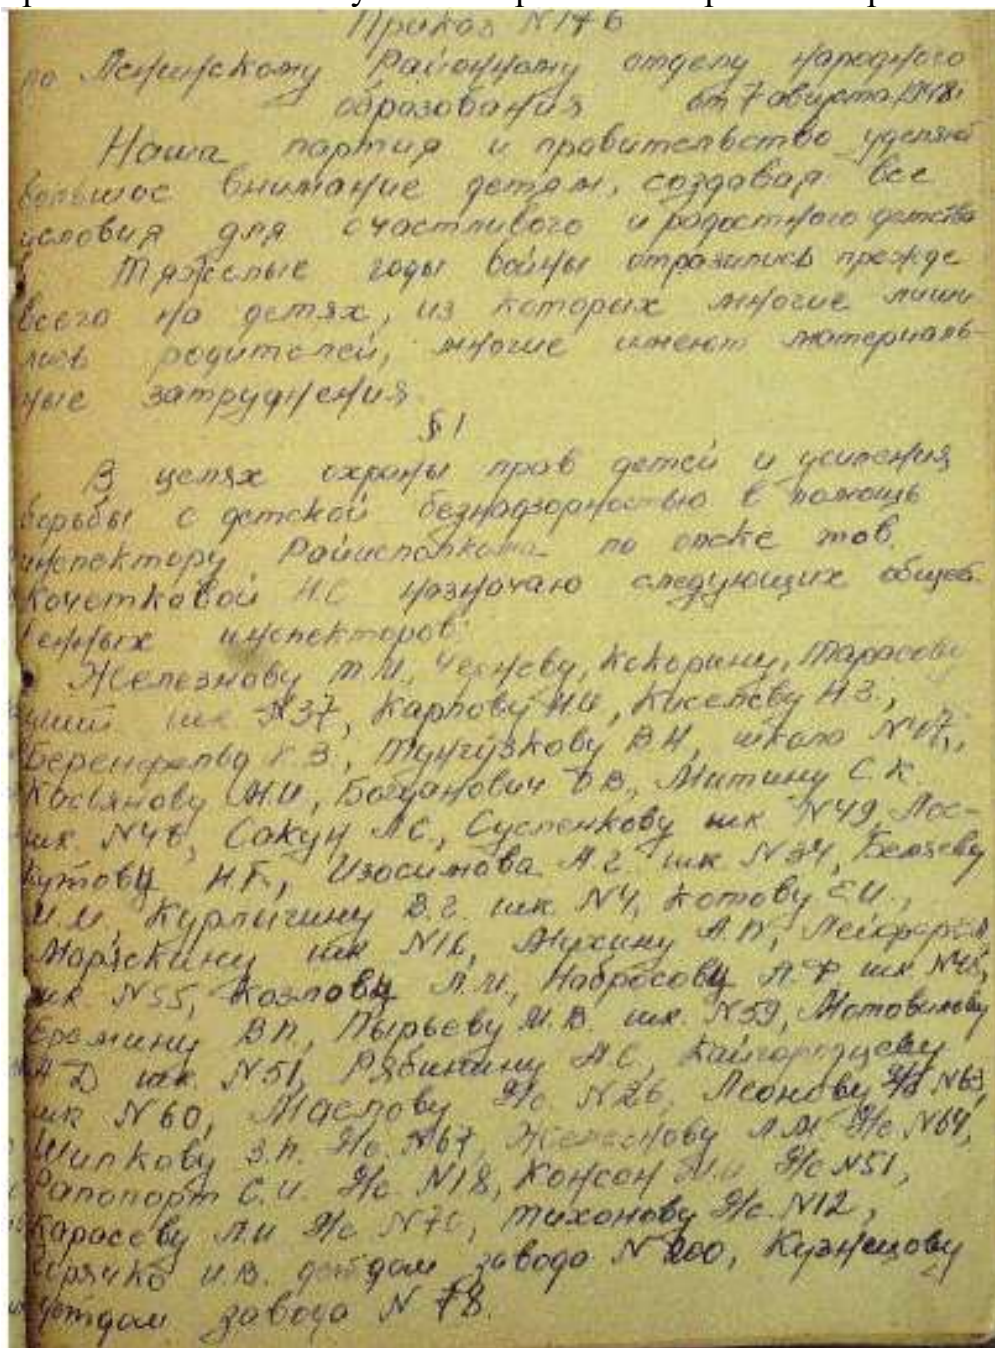 Приказ N 176
по Ленинскому Районному отделу народного
образования от 7 августа 1948.
Наша партия и правительство уделяют
большое внимание детям, создавая все
условия для счастливого и радостного детства
Тяжелые годы войны отразились прежде
всего на детях, из которых многие лиши
лись родителей, многие имеют материаль-
ные затруднения.
§ 1
В целях охраны прав детей и усиления
борьбы с детской безнадзорностью в помощь
инспектору Райисполкома по опеке тов.
Кочетковой Н.С. назначаю следующих общест-
венных инспекторов:
Железнову Т.И., Кокорину, Тарасову
шк N37, Карпову Н.И., Киселеву Н.З.,
Беренфельд Г.З., Тунгузкову В.Н, школа N47,
Касьянову М.И, Богданович В.В., Митину С.К.
шк. N48, Сакун Л.С., Суспенкову шк N49, Лос-
кутову Н.Г., Изосимова А.Г. шк N34, Беляеву
М.И, Курлыгину В.Г. шк N4, Котову Е.И.,
Маряскину шк N16, Мухину А.П.,
шк. N55, Козлову Л.И., Набросову Л.Ф шк N45,
Еремину В.П., Пырьеву М.В. шк. N59, Мотовилову
А.Д шк. N51, Рябинину А.С, Кайгородцеву
шк N60, Маслову Я/с. N26, Леонову Я/с N63,
Шипкову З.П. Я/с. N67, Железнову Л.М. Я/с N64,
Рапопорт С.И. Я/с. N18, Консон М.И Я/с N51,
Карасеву Л.И Я/с N70, Тихонову Я/с. N12,
Горячко И.В. детдом завода N 200, Кузнецову
детдом завода N 78.